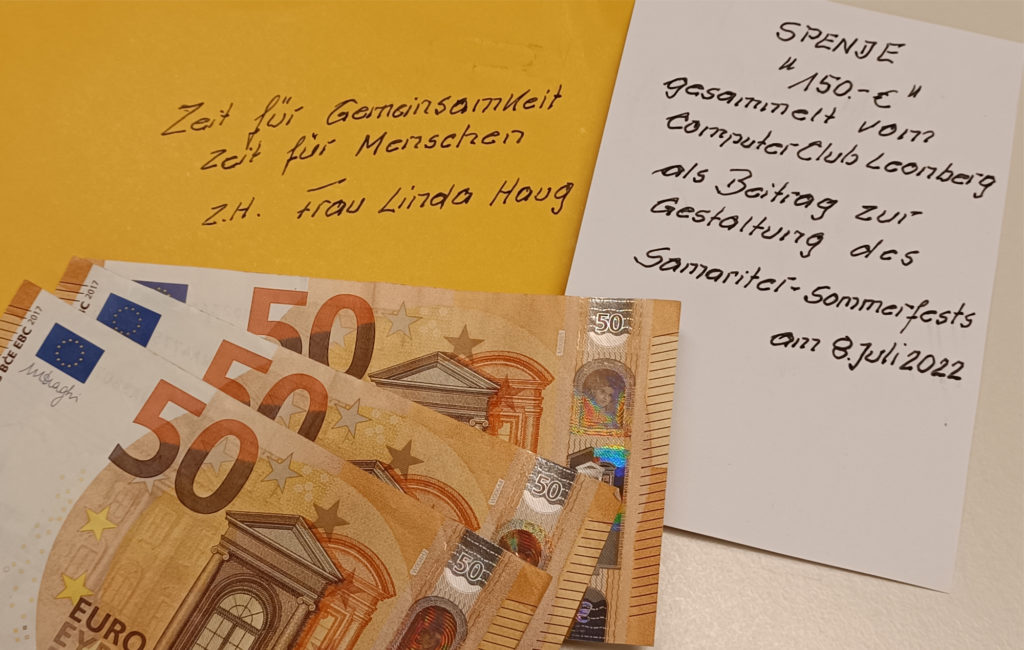 Zeit für Gemeinsamkeit
Zeit für Menschen
z.H. Frau Linda Haug
SPENDE
"150.-€"
gesammelt vom
ComputerClub Leonberg
als Beitrag zur
Gestaltung des
Samariter-Sommerfests
am 8. Juli 2022
50
50
50
50
50
50
BCE EBC 2017
2017
EURO